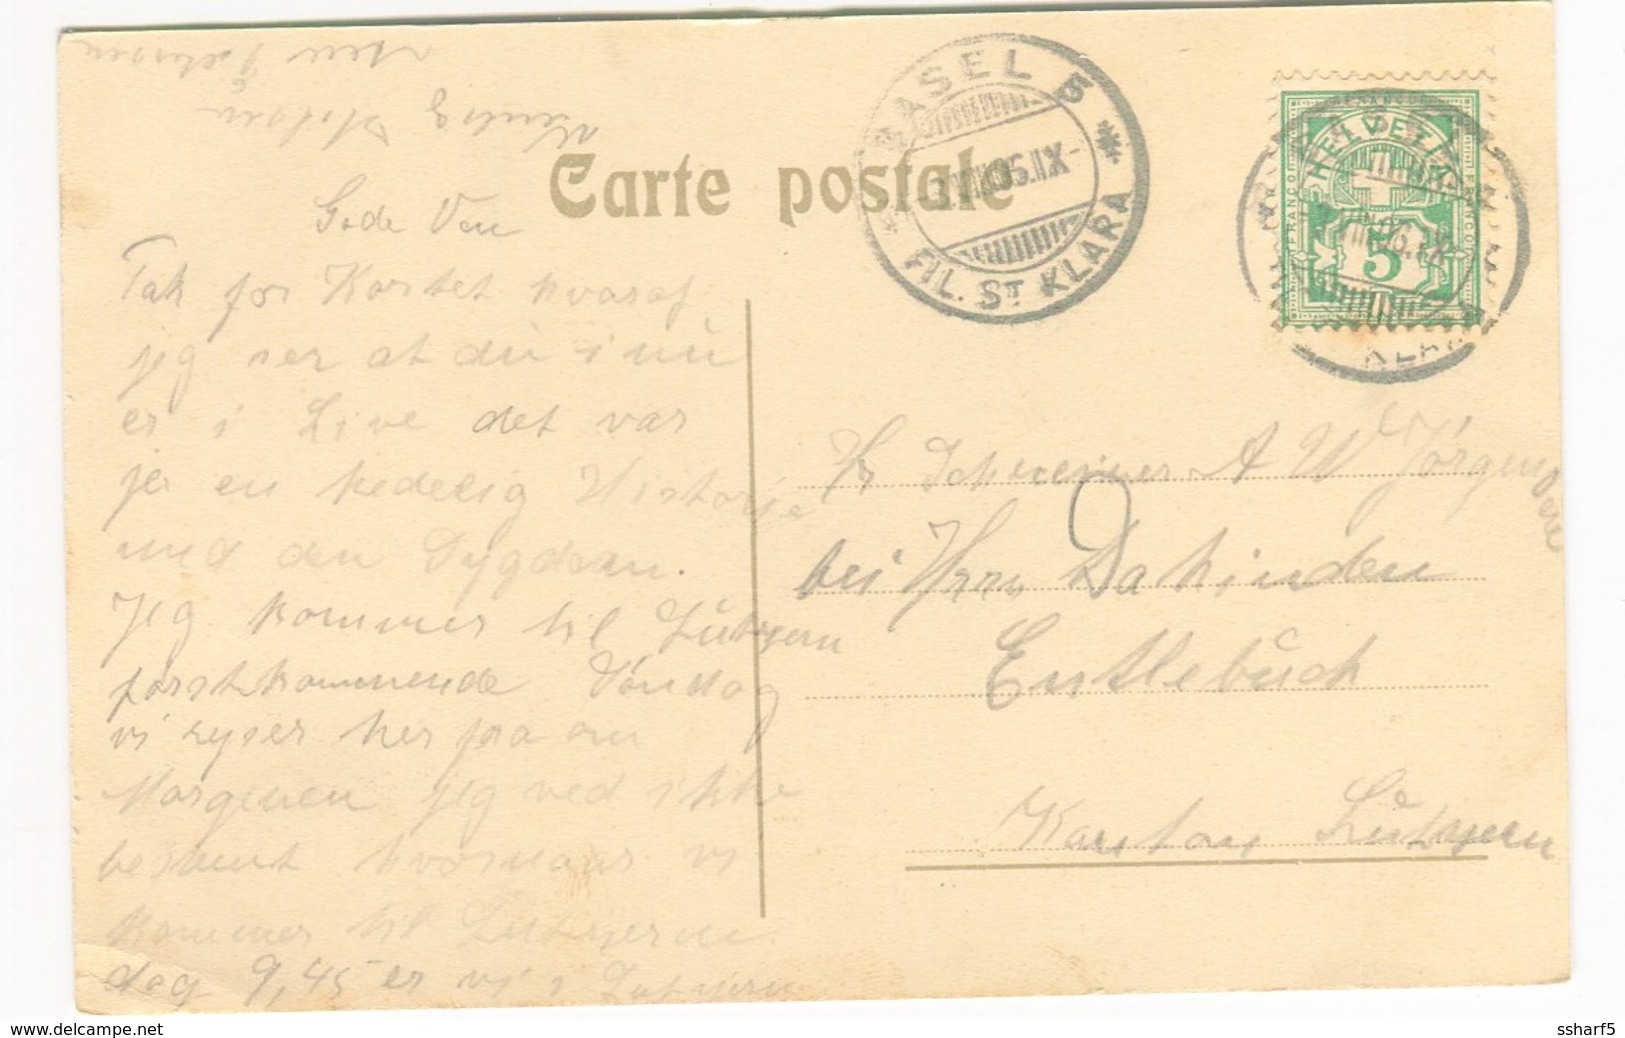 Carte postale
BASEL 5
FIL. ST KLARA
HELVETIA
FRANCO
5
Gode Ven
Tak for Kortet hvoraf
jeg ser at du i nu
er i Live det var
jo en kedelig Historje
med den Sygdom.
Jeg kommer til Lutzern
førstkommende Søndag
vi rejser her fra om
Morgenen jeg ved ikke
bestemt hvornaar vi
kommer til Lutzern
dag 9,45 er vi i Lutzern
Venlig Hilsen
Hr Schweizer A W Jørgensen
bei Herrn Dahinden
Entlebuch
Kanton Lutzern
www.delcampe.net
ssharf5